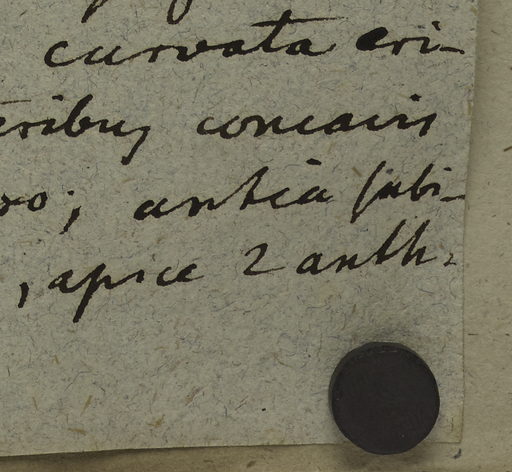 curvata eri-
eribus concavis
oo; antica subi-
, apice 2 anth.